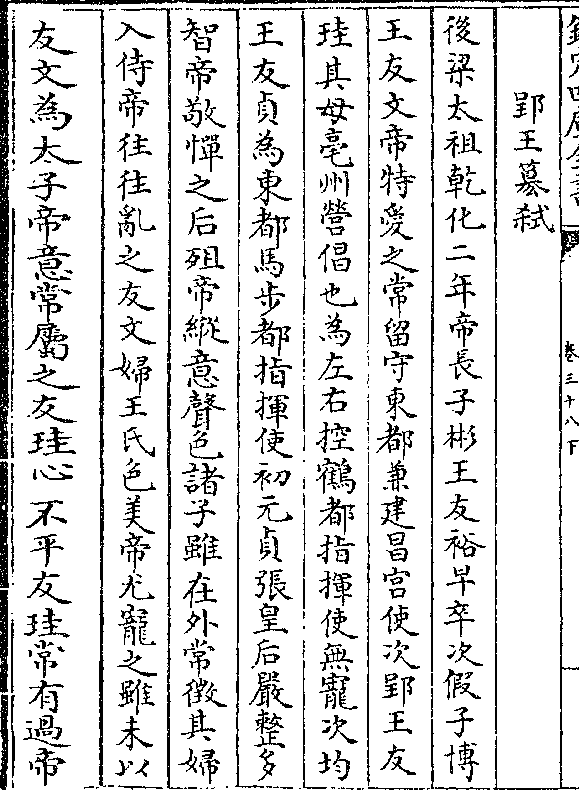 欽定四庫全書
卷三十八下
郢王簒弑
後梁太祖乾化二年帝長子彬王友裕早卒次假子博
王友文帝特愛之常留守東都兼建昌宫使次郢王友
珪其母亳州營倡也為左右控鶴都指揮使無寵次均
王友貞為東都馬步都指揮使初元貞張皇后嚴整多
智帝敬憚之后殂帝縱意聲色諸子雖在外常徵其婦
入侍帝往往亂之友文婦王氏色美帝尤寵之雖未以
友文為太子帝意常屬之友珪心不平友珪常有過帝